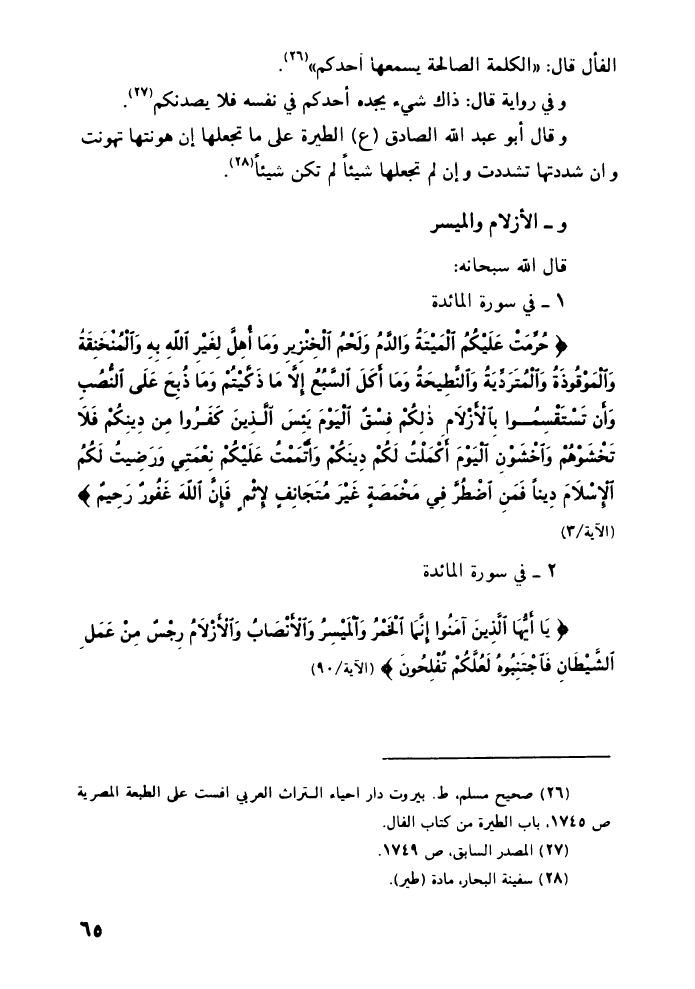 الفأل قال: «الكلمة الصالحة يسمعها أحدكم»(٢٦).
و في رواية قال: ذاك شيء يجده أحدكم في نفسه فلا يصدنكم(٢٧).
و قال أبو عبد الله الصادق (ع) الطيرة على ما تجعلها إن هونتها تهونت
و ان شددتها تشددت و إن لم تجعلها شيئاً لم تكن شيئاً(٢٨).
و ـ الأزلام والميسر
قال الله سبحانه:
١ ـ في سورة المائدة
﴿ حُرِّمَتْ عَلَيْكُمُ ٱلْمَيْتَةُ وَالدَّمُ وَلَحْمُ ٱلْخِنْزِيرِ وَمَا أُهِلَّ لِغَيْرِ ٱللَّهِ بِهِ وَٱلْمُنْخَنِقَةُ
وَٱلْمَوْقُوذَةُ وَٱلْمُتَرَدِّيَةُ وَٱلنَّطِيحَةُ وَمَا أَكَلَ السَّبُعُ إِلَّا مَا ذَكَّيْتُمْ وَمَا ذُبِحَ عَلَى ٱلنُّصُبِ
وَأَن تَسْتَقْسِمُوا بِٱلْأَزْلَامِ ذٰلِكُمْ فِسْقٌ ٱلْيَوْمَ يَئِسَ ٱلَّذِينَ كَفَرُوا مِن دِينِكُمْ فَلَا
تَخْشَوْهُمْ وَٱخْشَوْنِ ٱلْيَوْمَ أَكْمَلْتُ لَكُمْ دِينَكُمْ وَأَتْمَمْتُ عَلَيْكُمْ نِعْمَتِي وَرَضِيتُ لَكُمُ
ٱلْإِسْلَامَ دِيناً فَمَنِ ٱضْطُرَّ فِي مَخْمَصَةٍ غَيْرَ مُتَجَانِفٍ لِإِثْمٍ فَإِنَّ ٱللَّهَ غَفُورٌ رَحِيمٌ ﴾
(الآية/٣)
٢ ـ في سورة المائدة
﴿ يَا أَيُّهَا ٱلَّذِينَ آمَنُوا إِنَّمَا ٱلْخَمْرُ وَٱلْمَيْسِرُ وَٱلْأَنْصَابُ وَٱلْأَزْلَامُ رِجْسٌ مِنْ عَمَلِ
ٱلشَّيْطَانِ فَٱجْتَنِبُوهُ لَعَلَّكُمْ تُفْلِحُونَ ﴾ (الآية/٩٠)
(٢٦) صحيح مسلم، ط. بيروت دار احياء التراث العربي افست على الطبعة المصرية
ص ١٧٤٥، باب الطيرة من كتاب الفال.
(٢٧) المصدر السابق، ص ١٧٤٩.
(٢٨) سفينة البحار، مادة (طير).
٦٥